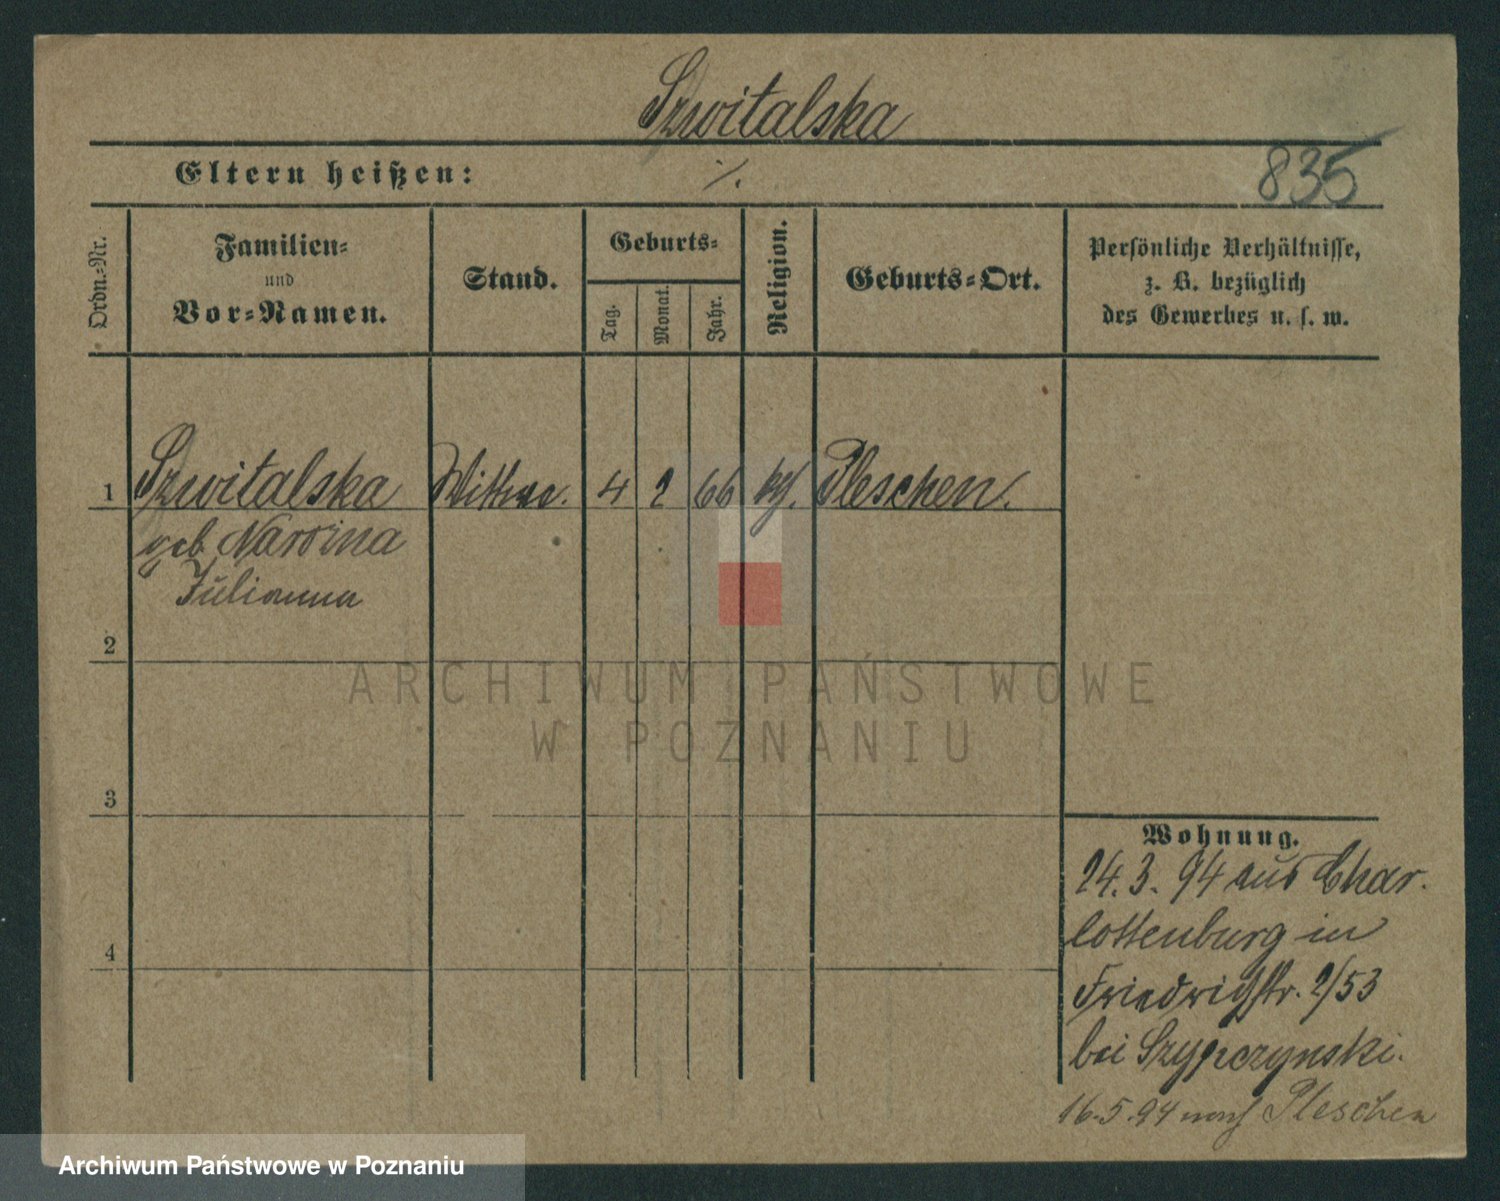 Szwitalska
Eltern heißen: ·/.
835
Ordn.-Nr.
Familien-
und
Vor-Namen.
Stand.
Geburts-
Tag.
Monat.
Jahr.
Religion.
Geburts-Ort.
Persönliche Verhältnisse,
z. B. bezüglich
des Gewerbes u. s. w.
1 Szwitalska Wittwe. 4 2 66 kth. Pleschen.
geb. Narozna
Julianna
2
3
4
Wohnung.
24.3.94 aus Char-
lottenburg in
Friedrichstr. 2/53
bei Szypczynski.
16.5.94 nach Pleschen
ARCHIWUM PAŃSTWOWE
W POZNANIU
Archiwum Państwowe w Poznaniu